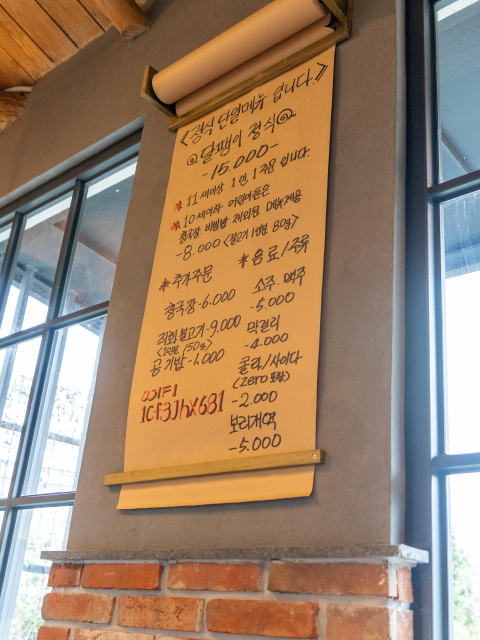 <정식 단일메뉴 입니다.>
달팽이 정식
-15.000-
* 11세이상 1인, 1주문 입니다.
* 10세이하 어린이들은
청국장·비빔밥 제외된 메뉴제공
-8.000 <불고기 1인분 80g>
* 추가주문
청국장-6.000
직화불고기-9.000
<1인분/150g>
공기밥-1.000
WIFI
1cf3Jhx681
* 음료/주류
소주. 맥주
-5.000
막걸리
-4.000
콜라/사이다
(zero 포함)
-2.000
보리개역
-5.000